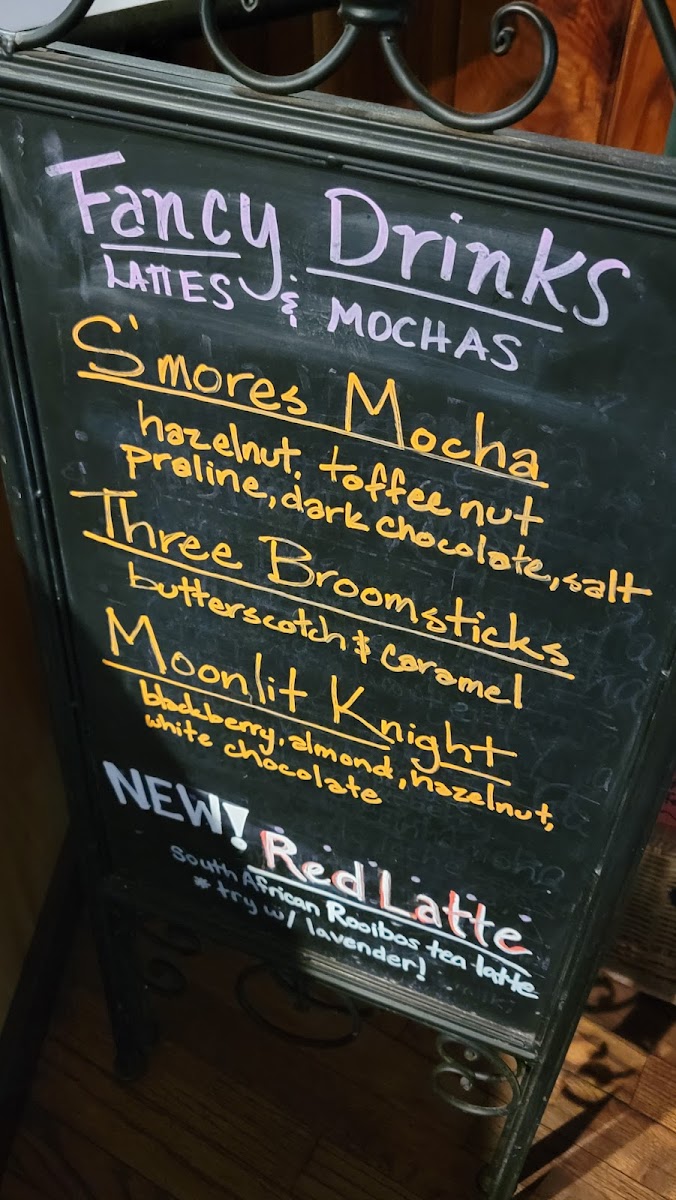 Fancy Drinks
LATTES & MOCHAS
S'mores Mocha
hazelnut, toffee nut
praline, dark chocolate, salt
Three Broomsticks
butterscotch & caramel
Moonlit Knight
blackberry, almond, hazelnut,
white chocolate
NEW! Red Latte
South African Rooibos tea latte
* try w/ lavender!